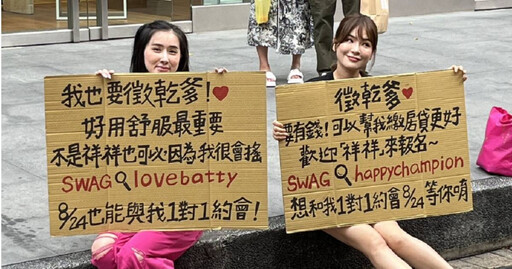 我也要徵乾爹!♥
好用舒服最重要
不是祥祥也可以因為我很會搖
SWAG🔍lovebatty
8/24也能與我1對1約會!
徵乾爹♥
要有錢!可以幫我繳房貸更好
歡迎「祥祥」來報名~
SWAG🔍happychampion
想和我1對1約會8/24等你唷